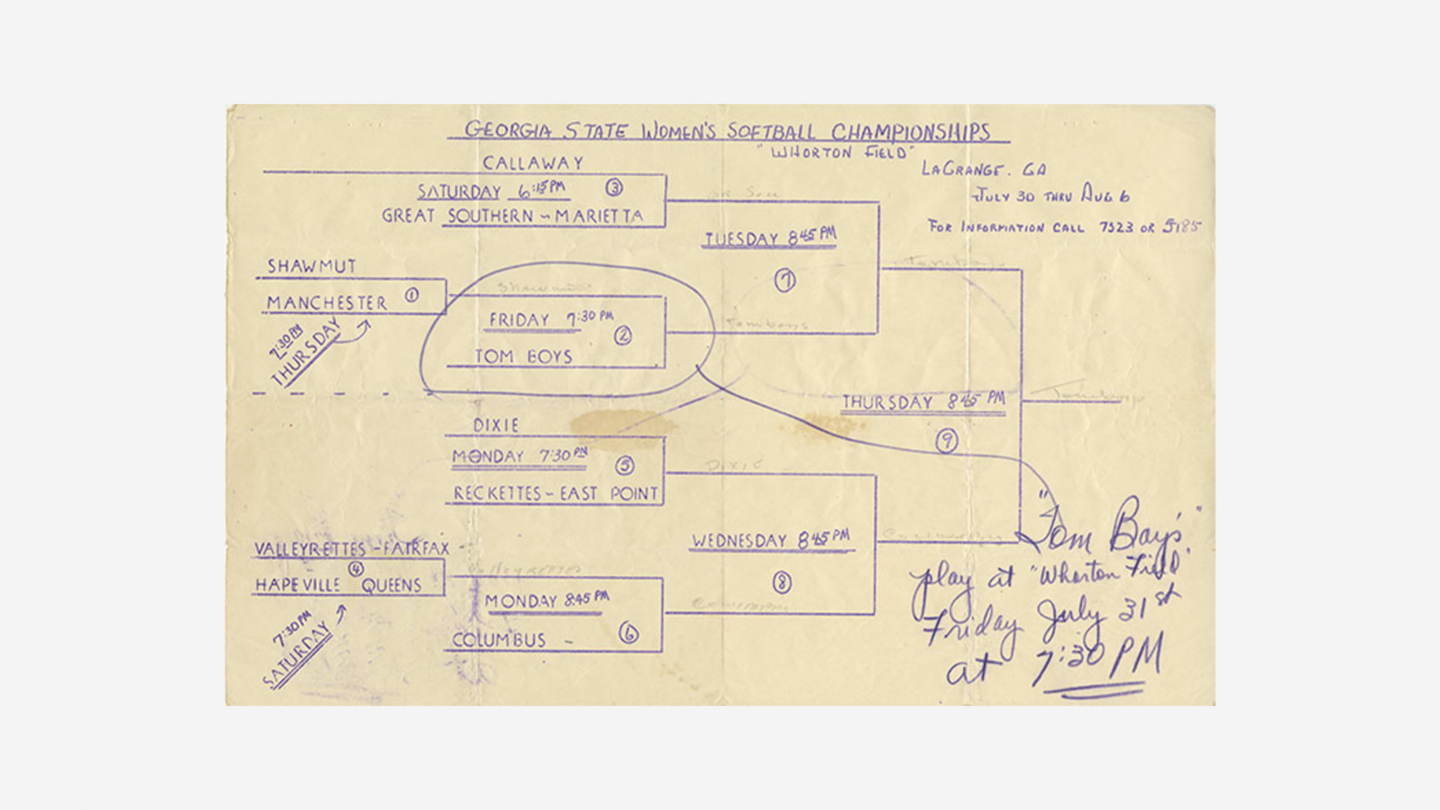 GEORGIA STATE WOMEN'S SOFTBALL CHAMPIONSHIPS
"WHORTON FIELD"
LAGRANGE. GA
JULY 30 THRU AUG 6
FOR INFORMATION CALL 7323 OR 5185
CALLAWAY
SATURDAY 6:15 PM ③
GREAT SOUTHERN - MARIETTA
TUESDAY 8 45 PM
⑦
SHAWMUT
MANCHESTER ①
7:30 PM
THURSDAY
Shawmut
FRIDAY 7:30 PM ②
TOM BOYS
Tomboys
Tomboys
THURSDAY 8 45 PM
⑨
Tomboys
DIXIE
MONDAY 7:30 PM ⑤
RECKETTES - EAST POINT
DIXIE
WEDNESDAY 8 45 PM
⑧
VALLEYRETTES - FAIRFAX
④
HAPEVILLE QUEENS
7:30 PM
SATURDAY
MONDAY 8:45 PM
COLUMBUS - ⑥
"Tom Boys"
play at "Whorton Field"
Friday July 31st
at 7:30 PM